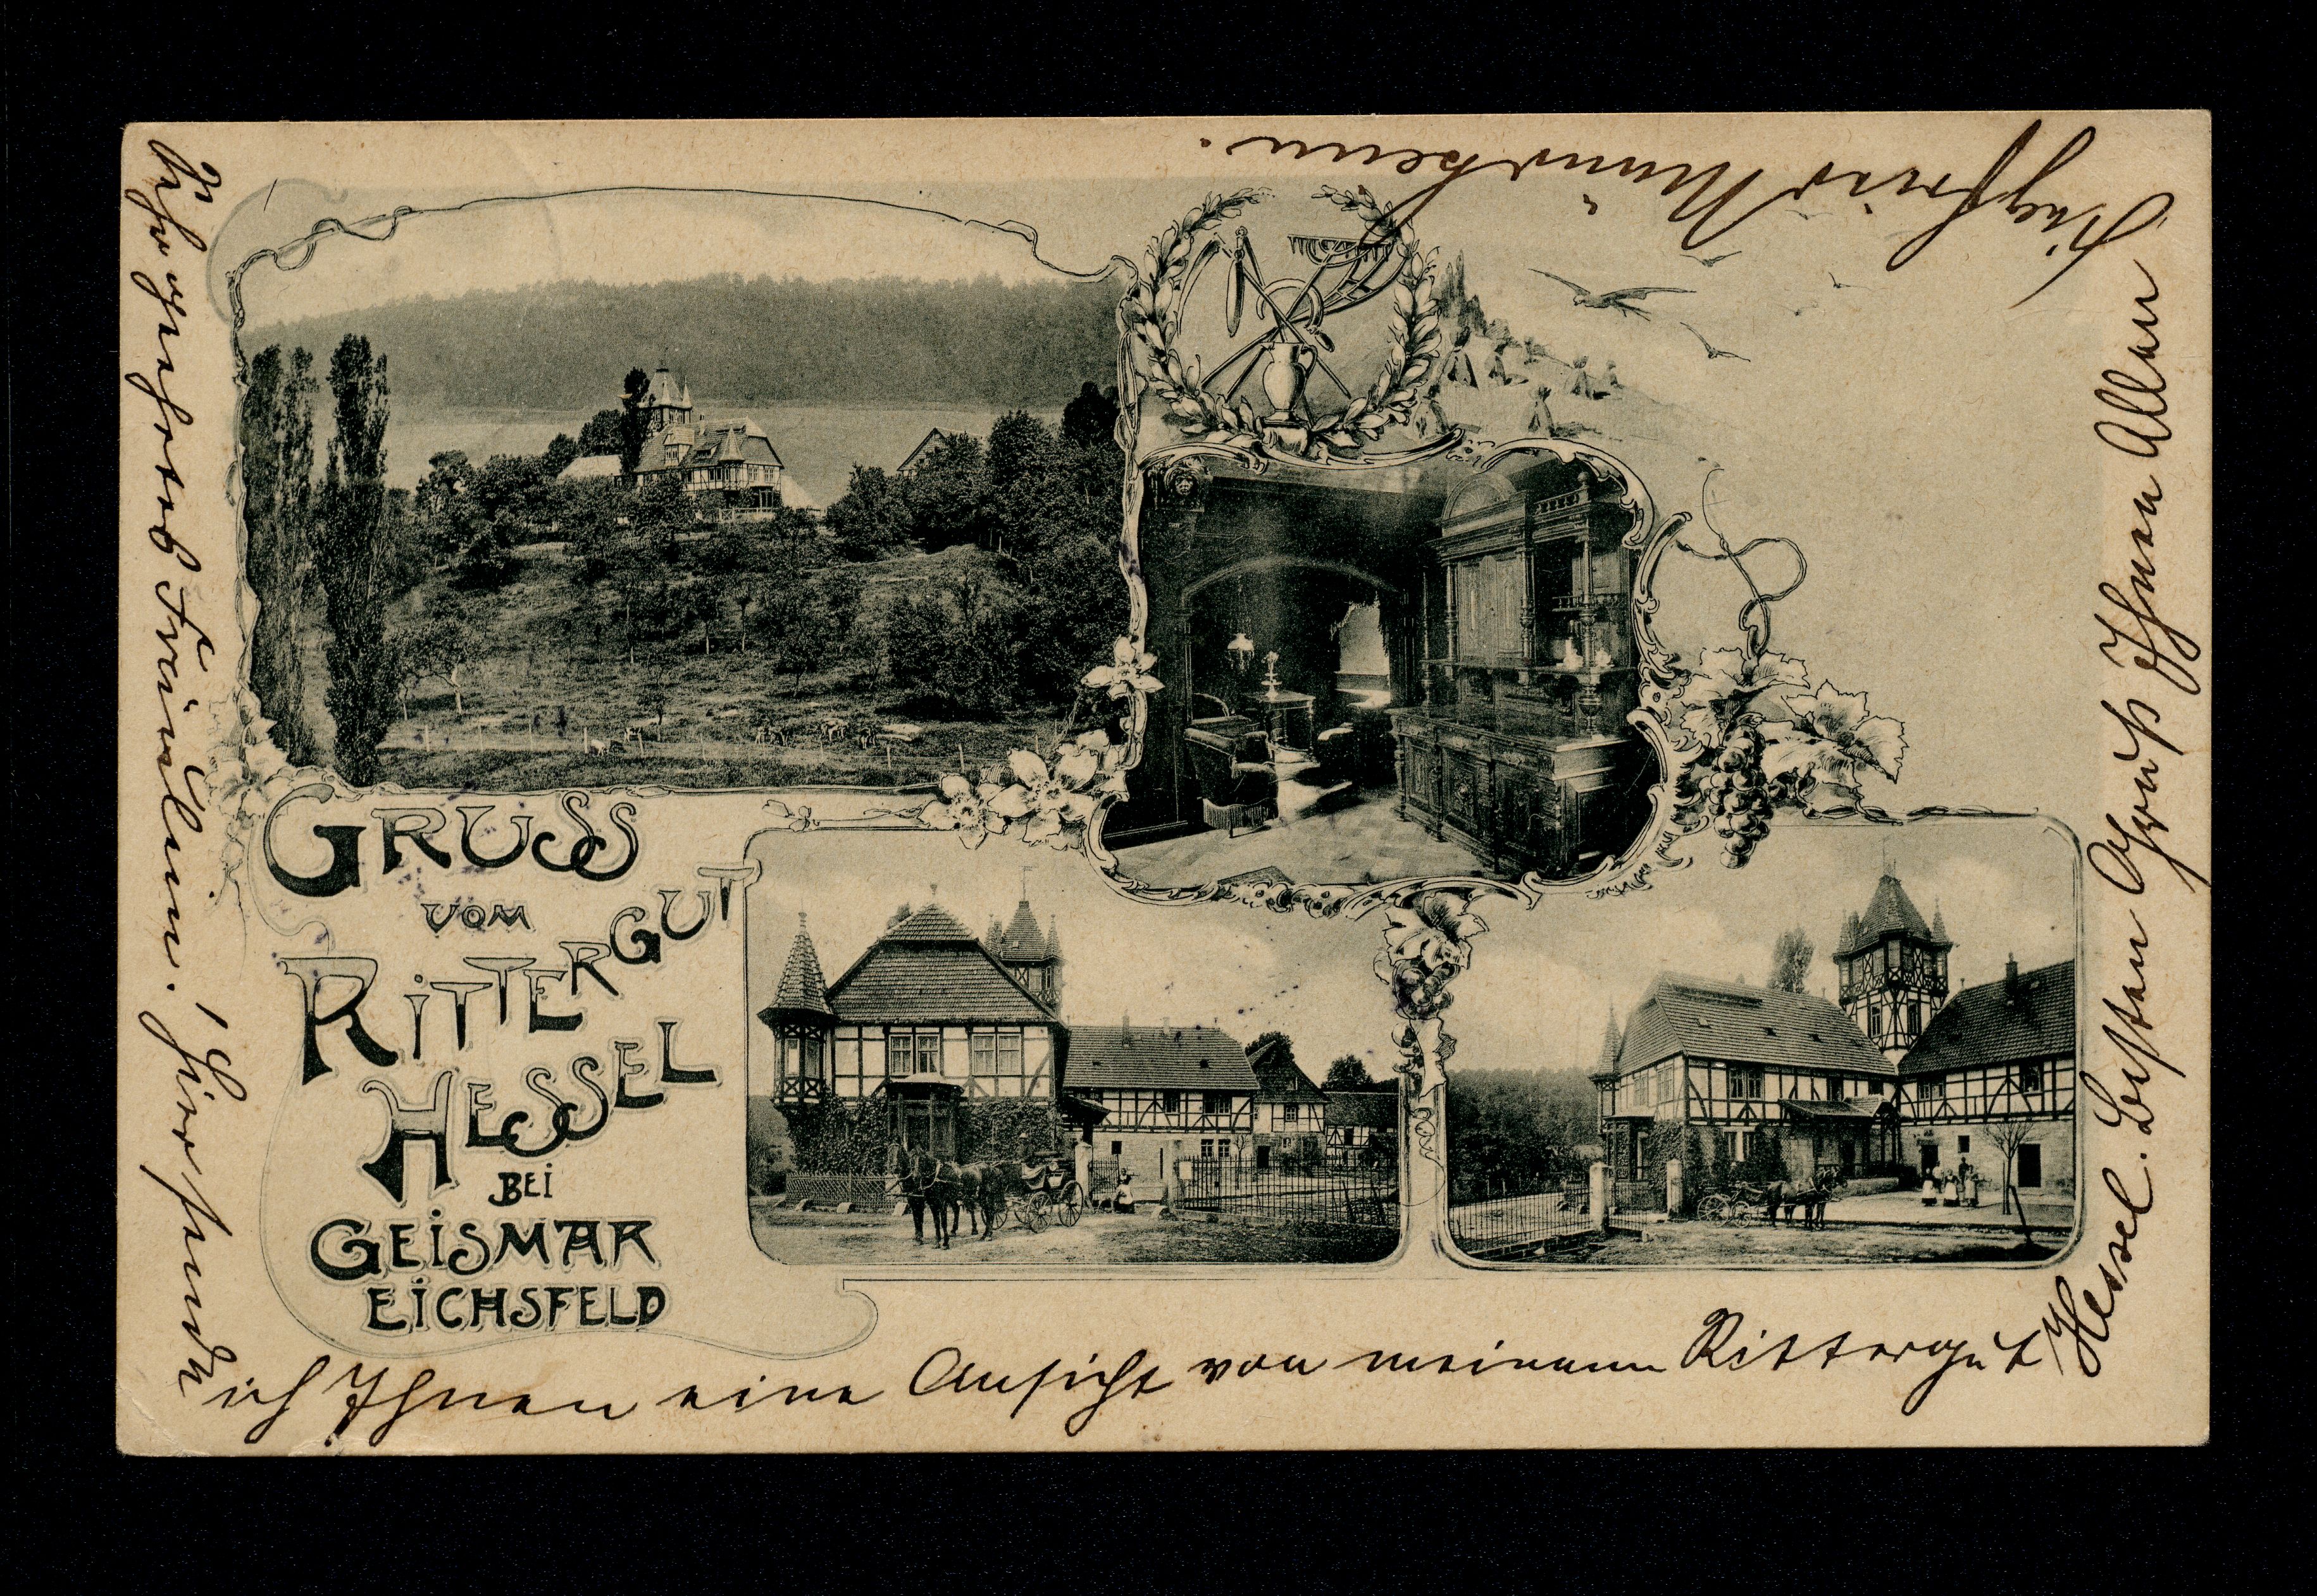 GRUSS
VOM
RITTERGUT
HESSEL
BEI
GEISMAR
EICHSFELD
Sehr geehrtes Fräulein. Hier sende
ich Ihnen eine Ansicht von meinem Rittergut
Hessel. Besten Gruß Ihnen Allen
Siegfried